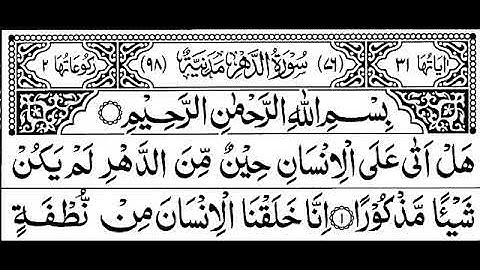 اٰیَاتُهَا ٣١ (٧٦) سُوۡرَةُ الدَّهۡرِ مَدَنِیَّةٌ (٩٨) رُکُوۡعَاتُهَا ٢
بِسۡمِ اللهِ الرَّحۡمٰنِ الرَّحِیۡمِ
هَلۡ اَتٰی عَلَی الۡاِنۡسَانِ حِیۡنٌ مِّنَ الدَّهۡرِ لَمۡ یَکُنۡ
شَیۡئًا مَّذۡکُوۡرًا ﴿١﴾ اِنَّا خَلَقۡنَا الۡاِنۡسَانَ مِنۡ نُّطۡفَةٍ